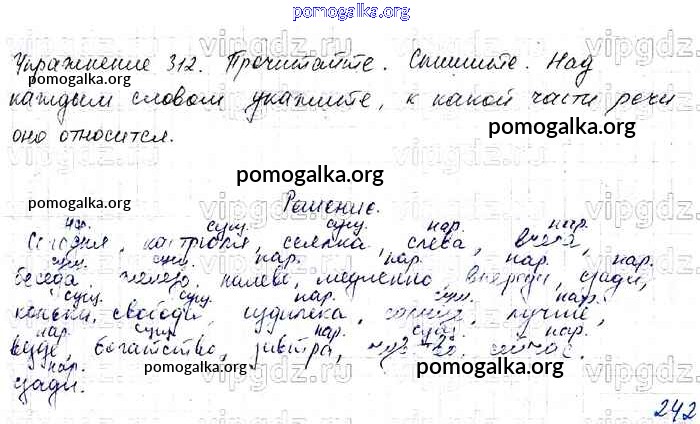 pomogalka.org
Упражнение 312. Прочитайте. Спишите. Над
pomogalka.org
каждым словом укажите, к какой части речи
оно относится.
pomogalka.org
pomogalka.org
pomogalka.org
Решение.
нар. сущ. сущ. нар. нар.
слева, вчера,
сущ. сущ. нар. нар. нар. нар.
беседа железо, налево, медленно, впереди, сзади,
сущ. сущ. нар. сущ. нар.
коньки, свобода, издалека, солнце, лучше,
нар. сущ. нар. сущ. нар.
везде, богатство, завтра, сейчас.
нар.
сзади.
pomogalka.org
pomogalka.org
242